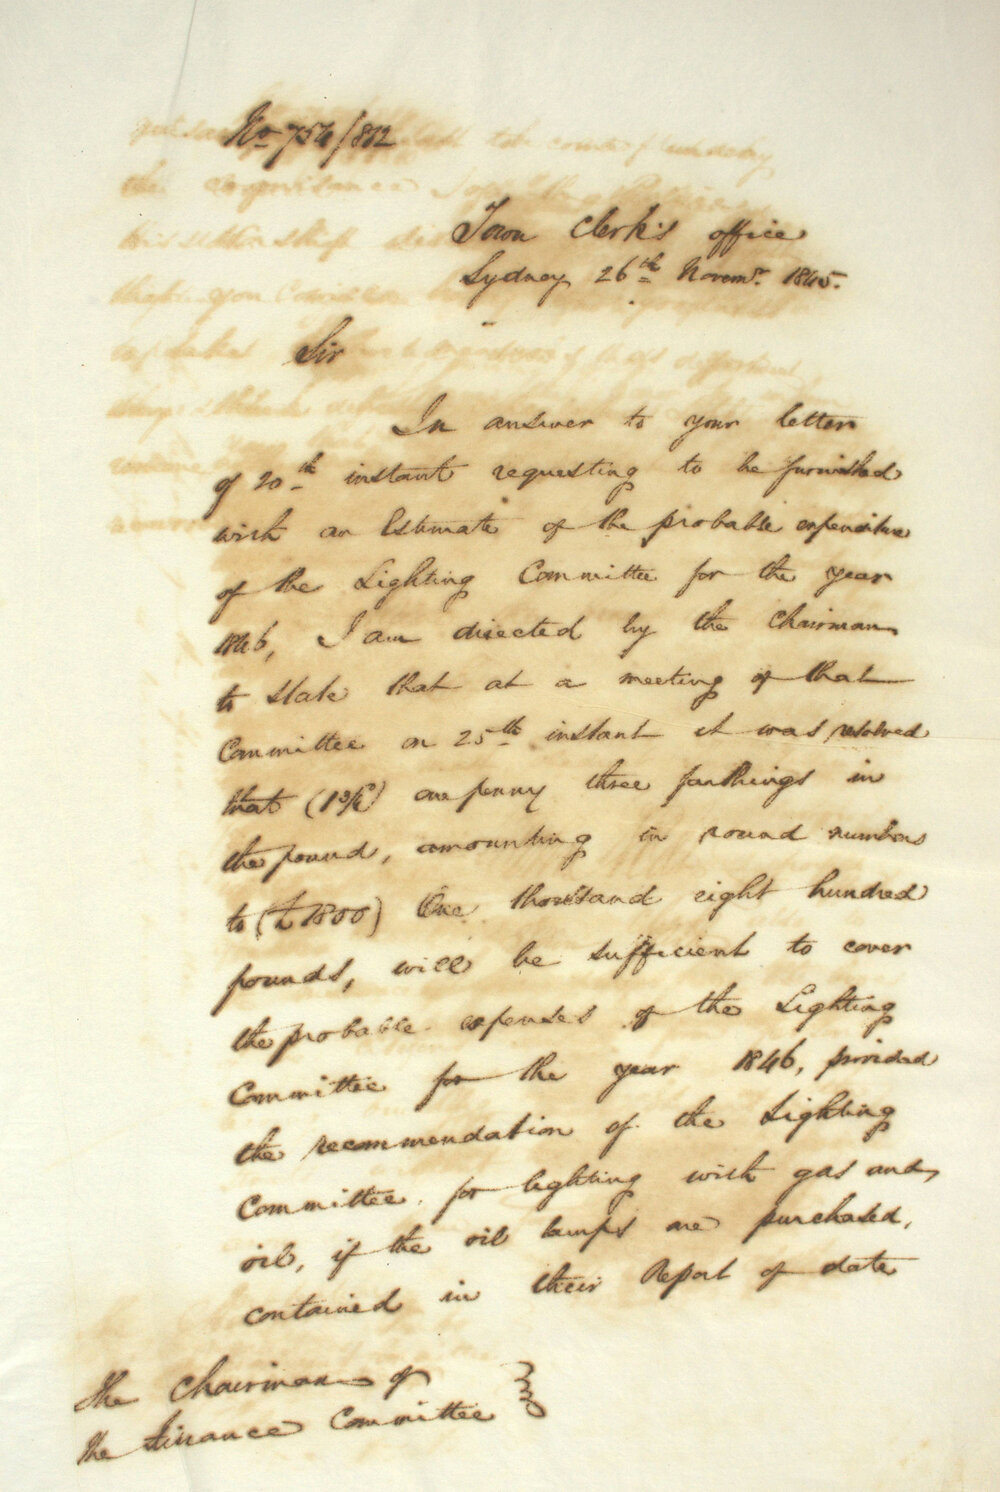 No 754/812
Town Clerk's office
Sydney 26th Novemr. 1845.
Sir
In answer to your letter
of 20th instant requesting to be furnished
with an Estimate of the probable expenditure
of the Lighting Committee for the year
1846, I am directed by the Chairman
to state that at a meeting of that
Committee on 25th instant it was resolved
that (1¾) one penny three farthings in
the pound, amounting in round numbers
to (£1800) One thousand eight hundred
pounds, will be sufficient to cover
the probable expenses of the Lighting
Committee for the year 1846, provided
the recommendation of the Lighting
Committee for lighting with gas and
oil, if the oil lamps are purchased,
contained in their Report of date
The Chairman of
the Finance Committee